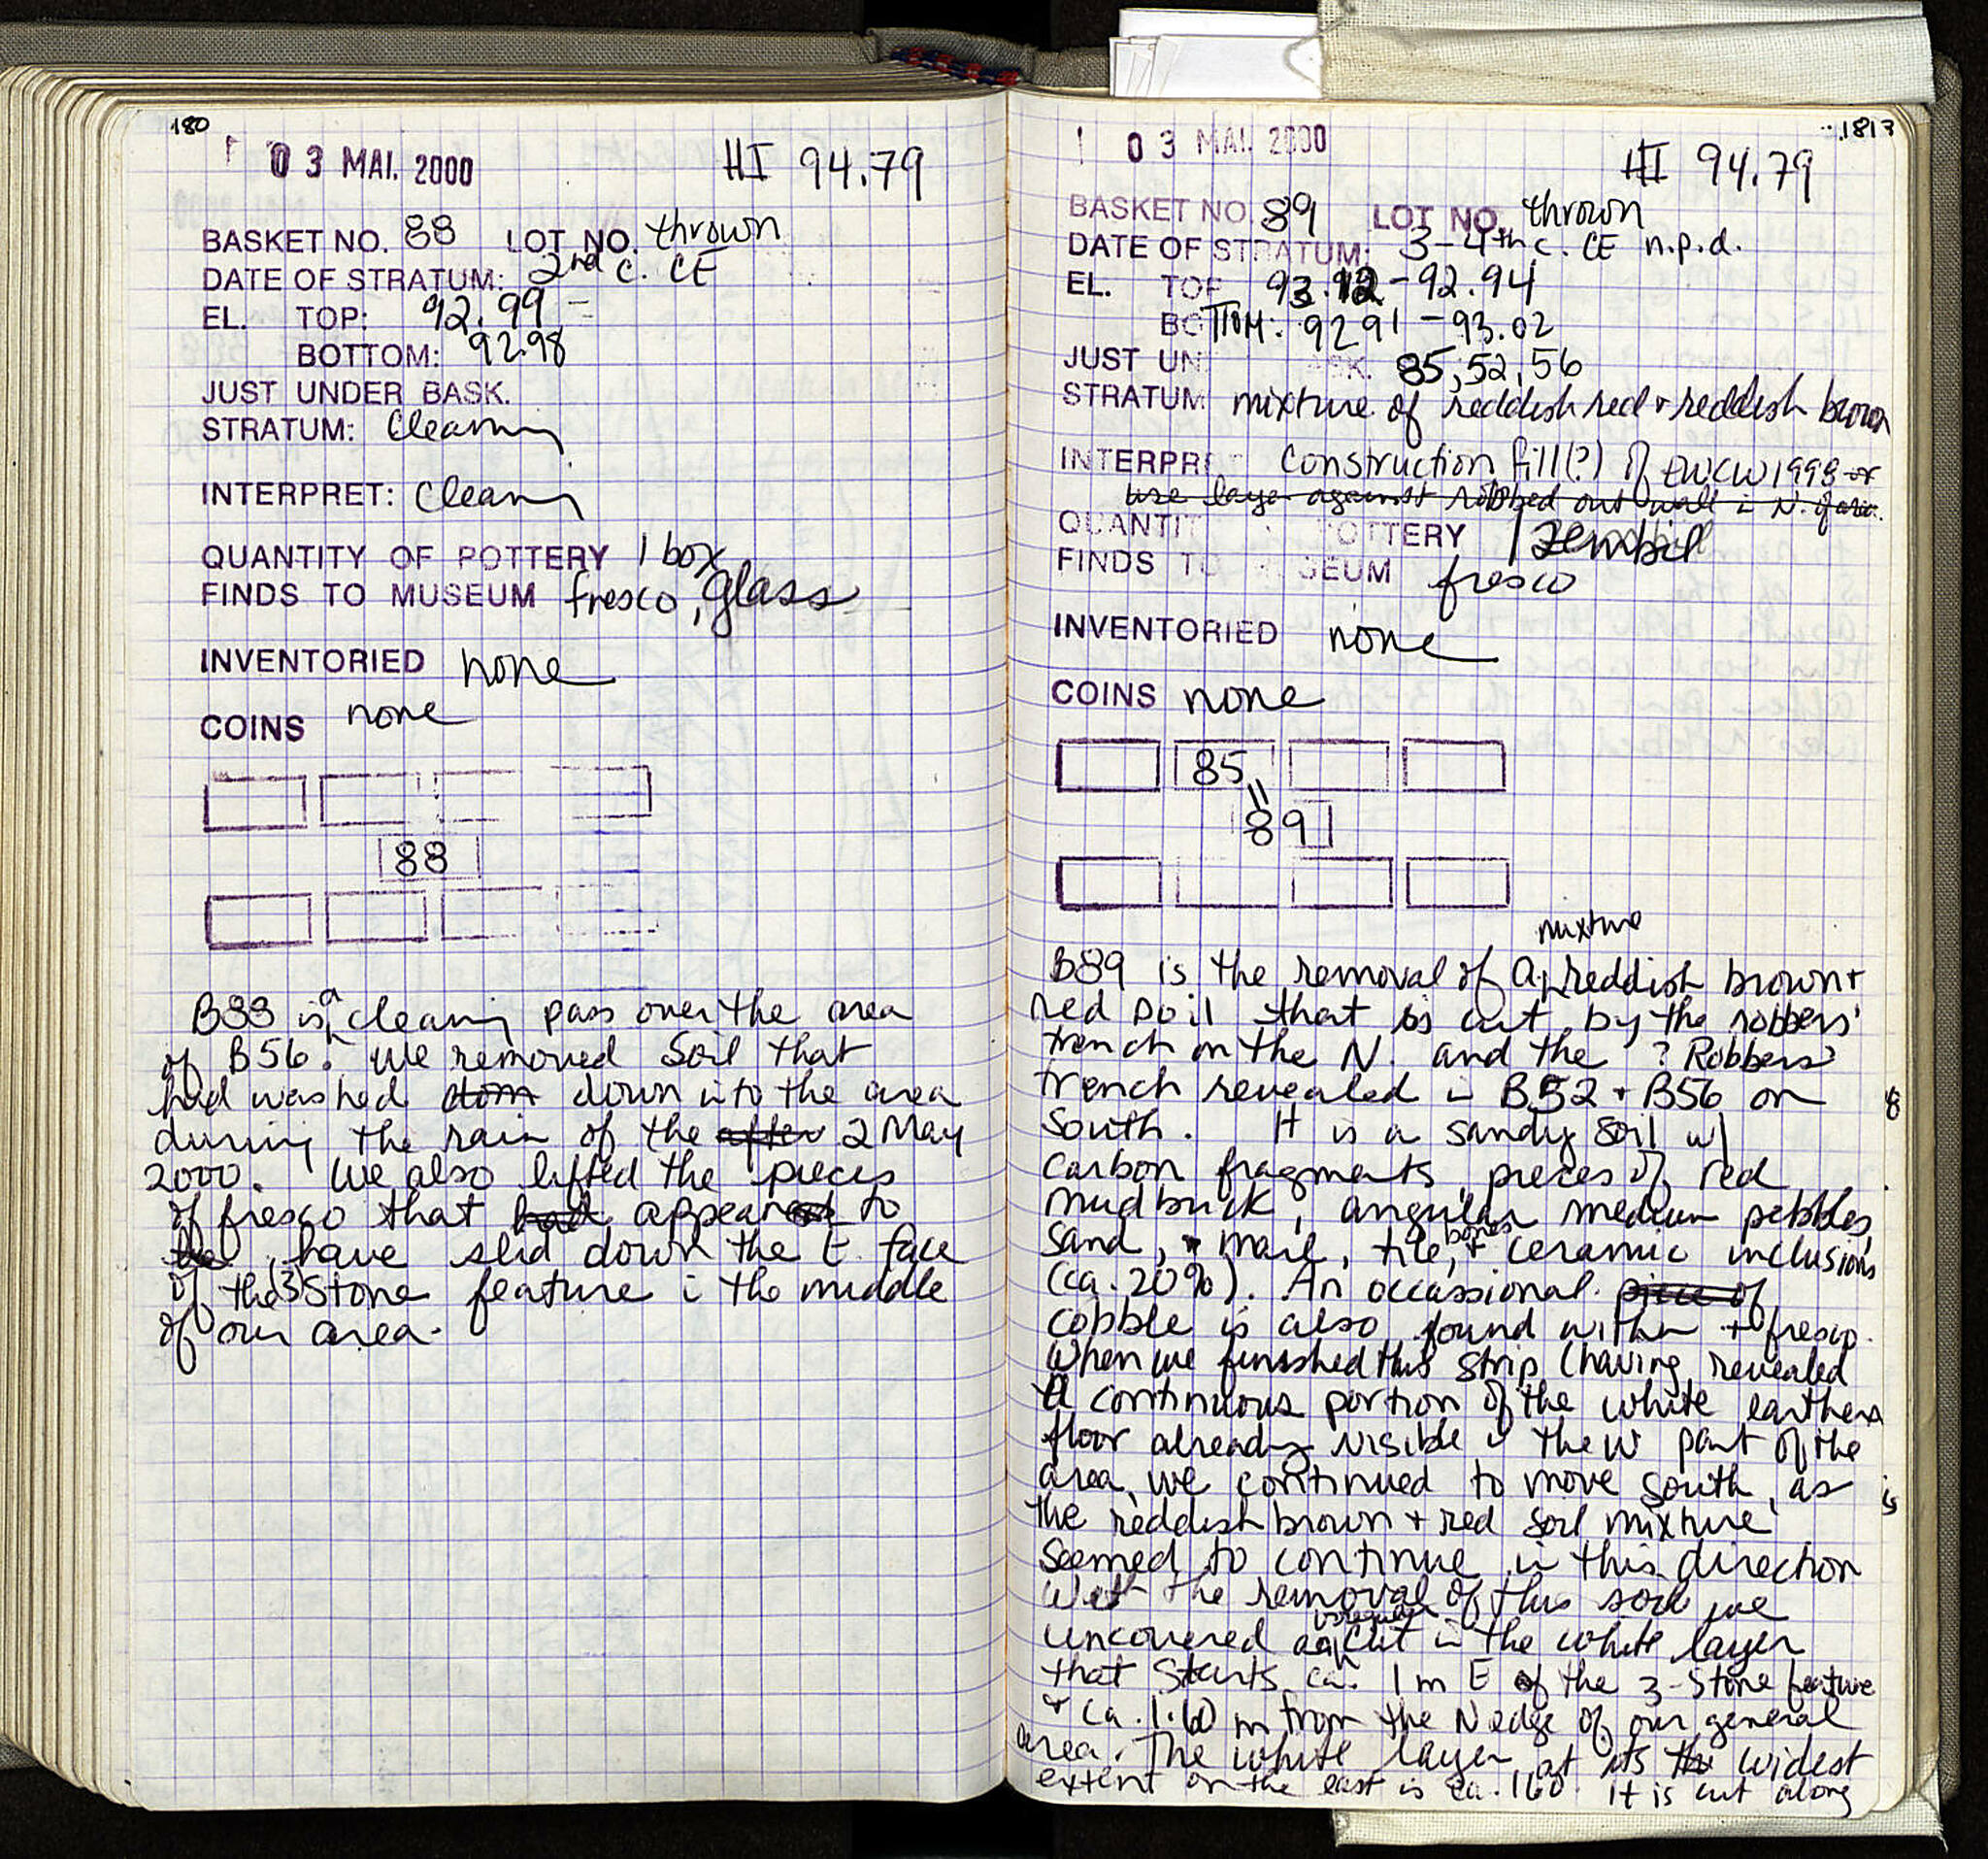 180
03 MAI. 2000 HI 94.79
BASKET NO. 88 LOT NO. thrown
DATE OF STRATUM: 2nd c. CE
EL. TOP: 92.99 -
BOTTOM: 92.98
JUST UNDER BASK.
STRATUM: Cleaning
INTERPRET: Cleaning
QUANTITY OF POTTERY 1 box
FINDS TO MUSEUM fresco, glass
INVENTORIED none
COINS none
88
B88 is a cleaning pass over the area
of B56. We removed soil that
had washed down into the area
during the rain of the after 2 May
2000. We also lifted the pieces
of fresco that had appeared to
have slid down the E face
of the 3 stone feature in the middle
of our area.
03 MAI. 2000 HI 94.79
BASKET NO. 89 LOT NO. thrown
DATE OF STRATUM: 3-4th c. CE n.p.d.
EL. TOP 93.12 - 92.94
BOTTOM: 92.91 - 93.02
JUST UN ASK. 85, 52, 56
STRATUM mixture of reddish red + reddish brown
INTERPRET Construction fill(?) of EWCW1998 or
use layer against robbed out wall in N. of area.
QUANTIT OTTERY 1 zembil
FINDS TO MUSEUM fresco
INVENTORIED none
COINS none
85
89
mixture
B89 is the removal of a reddish brown +
red soil that is cut by the robbers'
trench on the N. and the ? Robbers'
trench revealed in B52 + B56 on
south. It is a sandy soil w/
carbon fragments, pieces of red
mudbrick, angular medium pebbles,
sand, marl, tile, + bones ceramic inclusions
(ca. 20%). An occassional piece of
cobble is also found within + fresco.
When we finished this strip (having revealed
a continuous portion of the white earthen
floor already visible in the W part of the
area, we continued to move south, as
the reddish brown + red soil mixture
seemed to continue in this direction
With the removal of this soil we
uncovered an irregular cut in the white layer
that starts ca. 1m E of the 3-stone feature
+ ca. 1.60 m from the N edge of our general
area. The white layer at its the widest
extent on the east is ca. 1.60. It is cut along